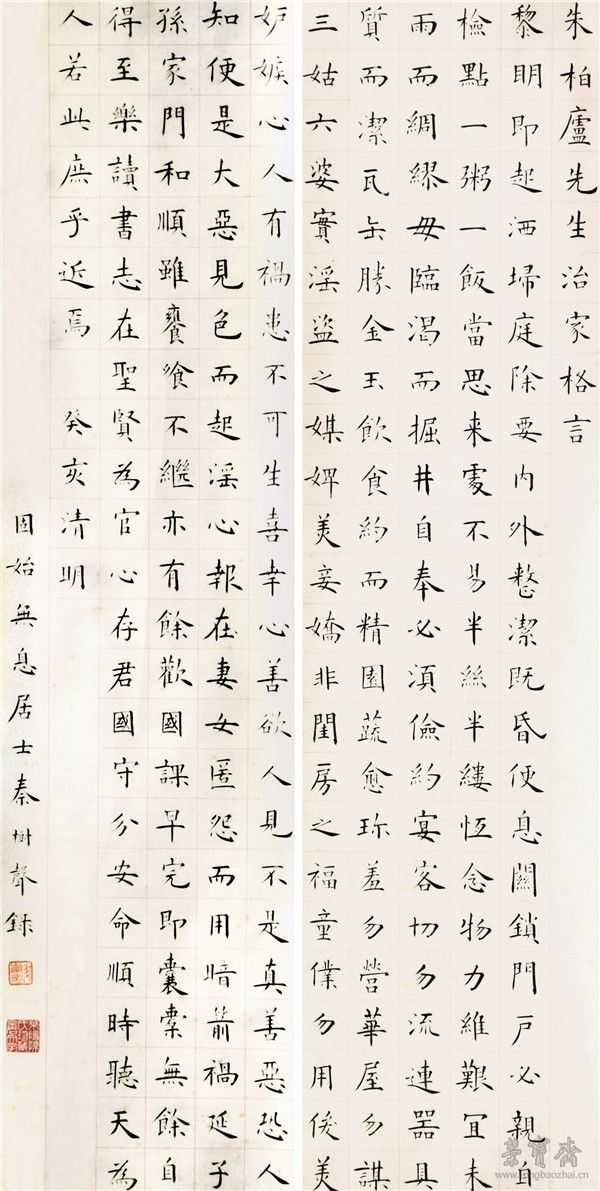 朱柏廬先生治家格言
黎明即起洒埽庭除要内外整潔既昏便息關鎖門戸必親自
檢點一粥一飯當思来處不易半絲半縷恆念物力維艱宜未
雨而綢繆毋臨渴而掘井自奉必須儉約宴客切勿流連器具
質而潔瓦缶勝金玉飲食約而精園蔬愈珎羞勿營華屋勿謀
三姑六婆實淫盜之媒婢美妾嬌非閨房之福童僕勿用俊美
妒嫉心人有禍患不可生喜幸心善欲人見不是真善惡恐人
知便是大惡見色而起淫心報在妻女匿怨而用暗箭禍延子
孫家門和順雖饔飧不繼亦有餘歡國課早完即囊橐無餘自
得至樂讀書志在聖賢為官心存君國守分安命順時聽天為
人若此庶乎近焉 癸亥清明
固始無息居士秦樹聲録
榮寳齋
www.rongbaozhai.cn